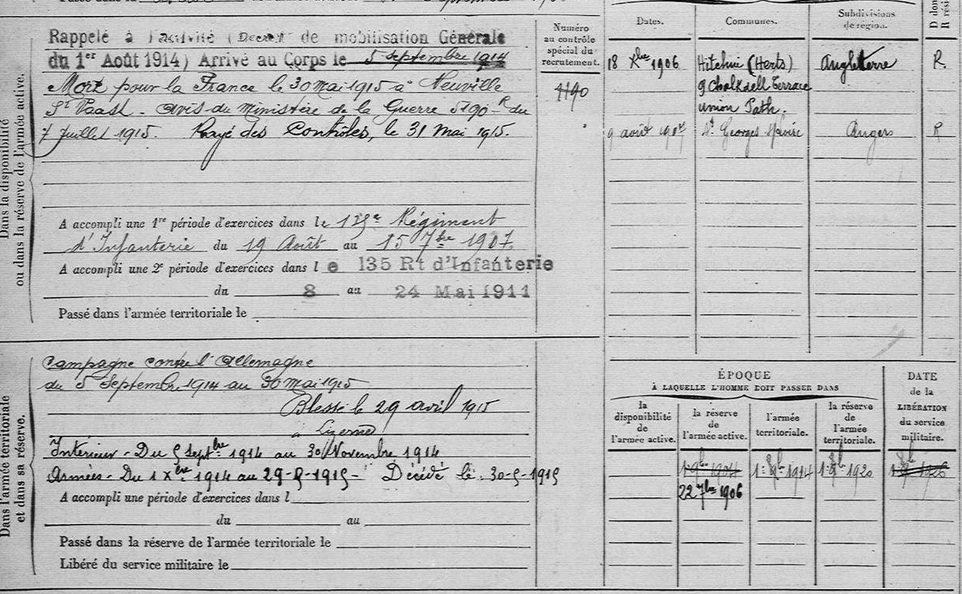 Rappelé à l'activité (Décret de mobilisation Générale
du 1er Août 1914) Arrivé au Corps le 5 septembre 1914
Mort pour la France le 30 mai 1915 à Neuville
St Vaast - avis du Ministère de la Guerre du
7 juillet 1915. Rayé des Contrôles, le 31 mai 1915.
Dans la disponibilité
ou dans la réserve de l'armée active.
A accompli une 1re période d'exercices dans le Régiment
d'Infanterie du 19 Août au 15 7bre 1907.
A accompli une 2e période d'exercices dans l e 135 Rt d'Infanterie
du 8 au 24 Mai 1911
Passé dans l'armée territoriale le
Numéro
au contrôle
spécial du
recrutement.
Dates.
Communes.
Subdivisions
de région.
D
résid
18 Xbre 1906
Hitchin (Herts)
Angleterre
R.
9 Chalkdell Terrace
Union Path.
9 août 1907
St Georges
Angers
R
Campagne contre l'Allemagne
du 5 Septembre 1914 au 30 mai 1915
Blessé le 29 avril 1915
à
Intérieur - Du 5 Septbre 1914 au 30 Novembre 1914
Armées - Du 1 Xbre 1914 au 29-5-1915 - Décédé le 30-5-1915
Dans l'armée territoriale
et dans sa réserve.
A accompli une période d'exercices dans l
du au
Passé dans la réserve de l'armée territoriale le
Libéré du service militaire le
ÉPOQUE
À LAQUELLE L'HOMME DOIT PASSER DANS
la
disponibilité
de
l'armée active.
la réserve
de
l'armée active.
l'armée
territoriale.
la réserve
de l'armée
territoriale.
DATE
de la
LIBÉRATION
du service
militaire.
1er 9bre 1904
1er 9bre 1914
1er 9bre 1920
22 7bre 1906